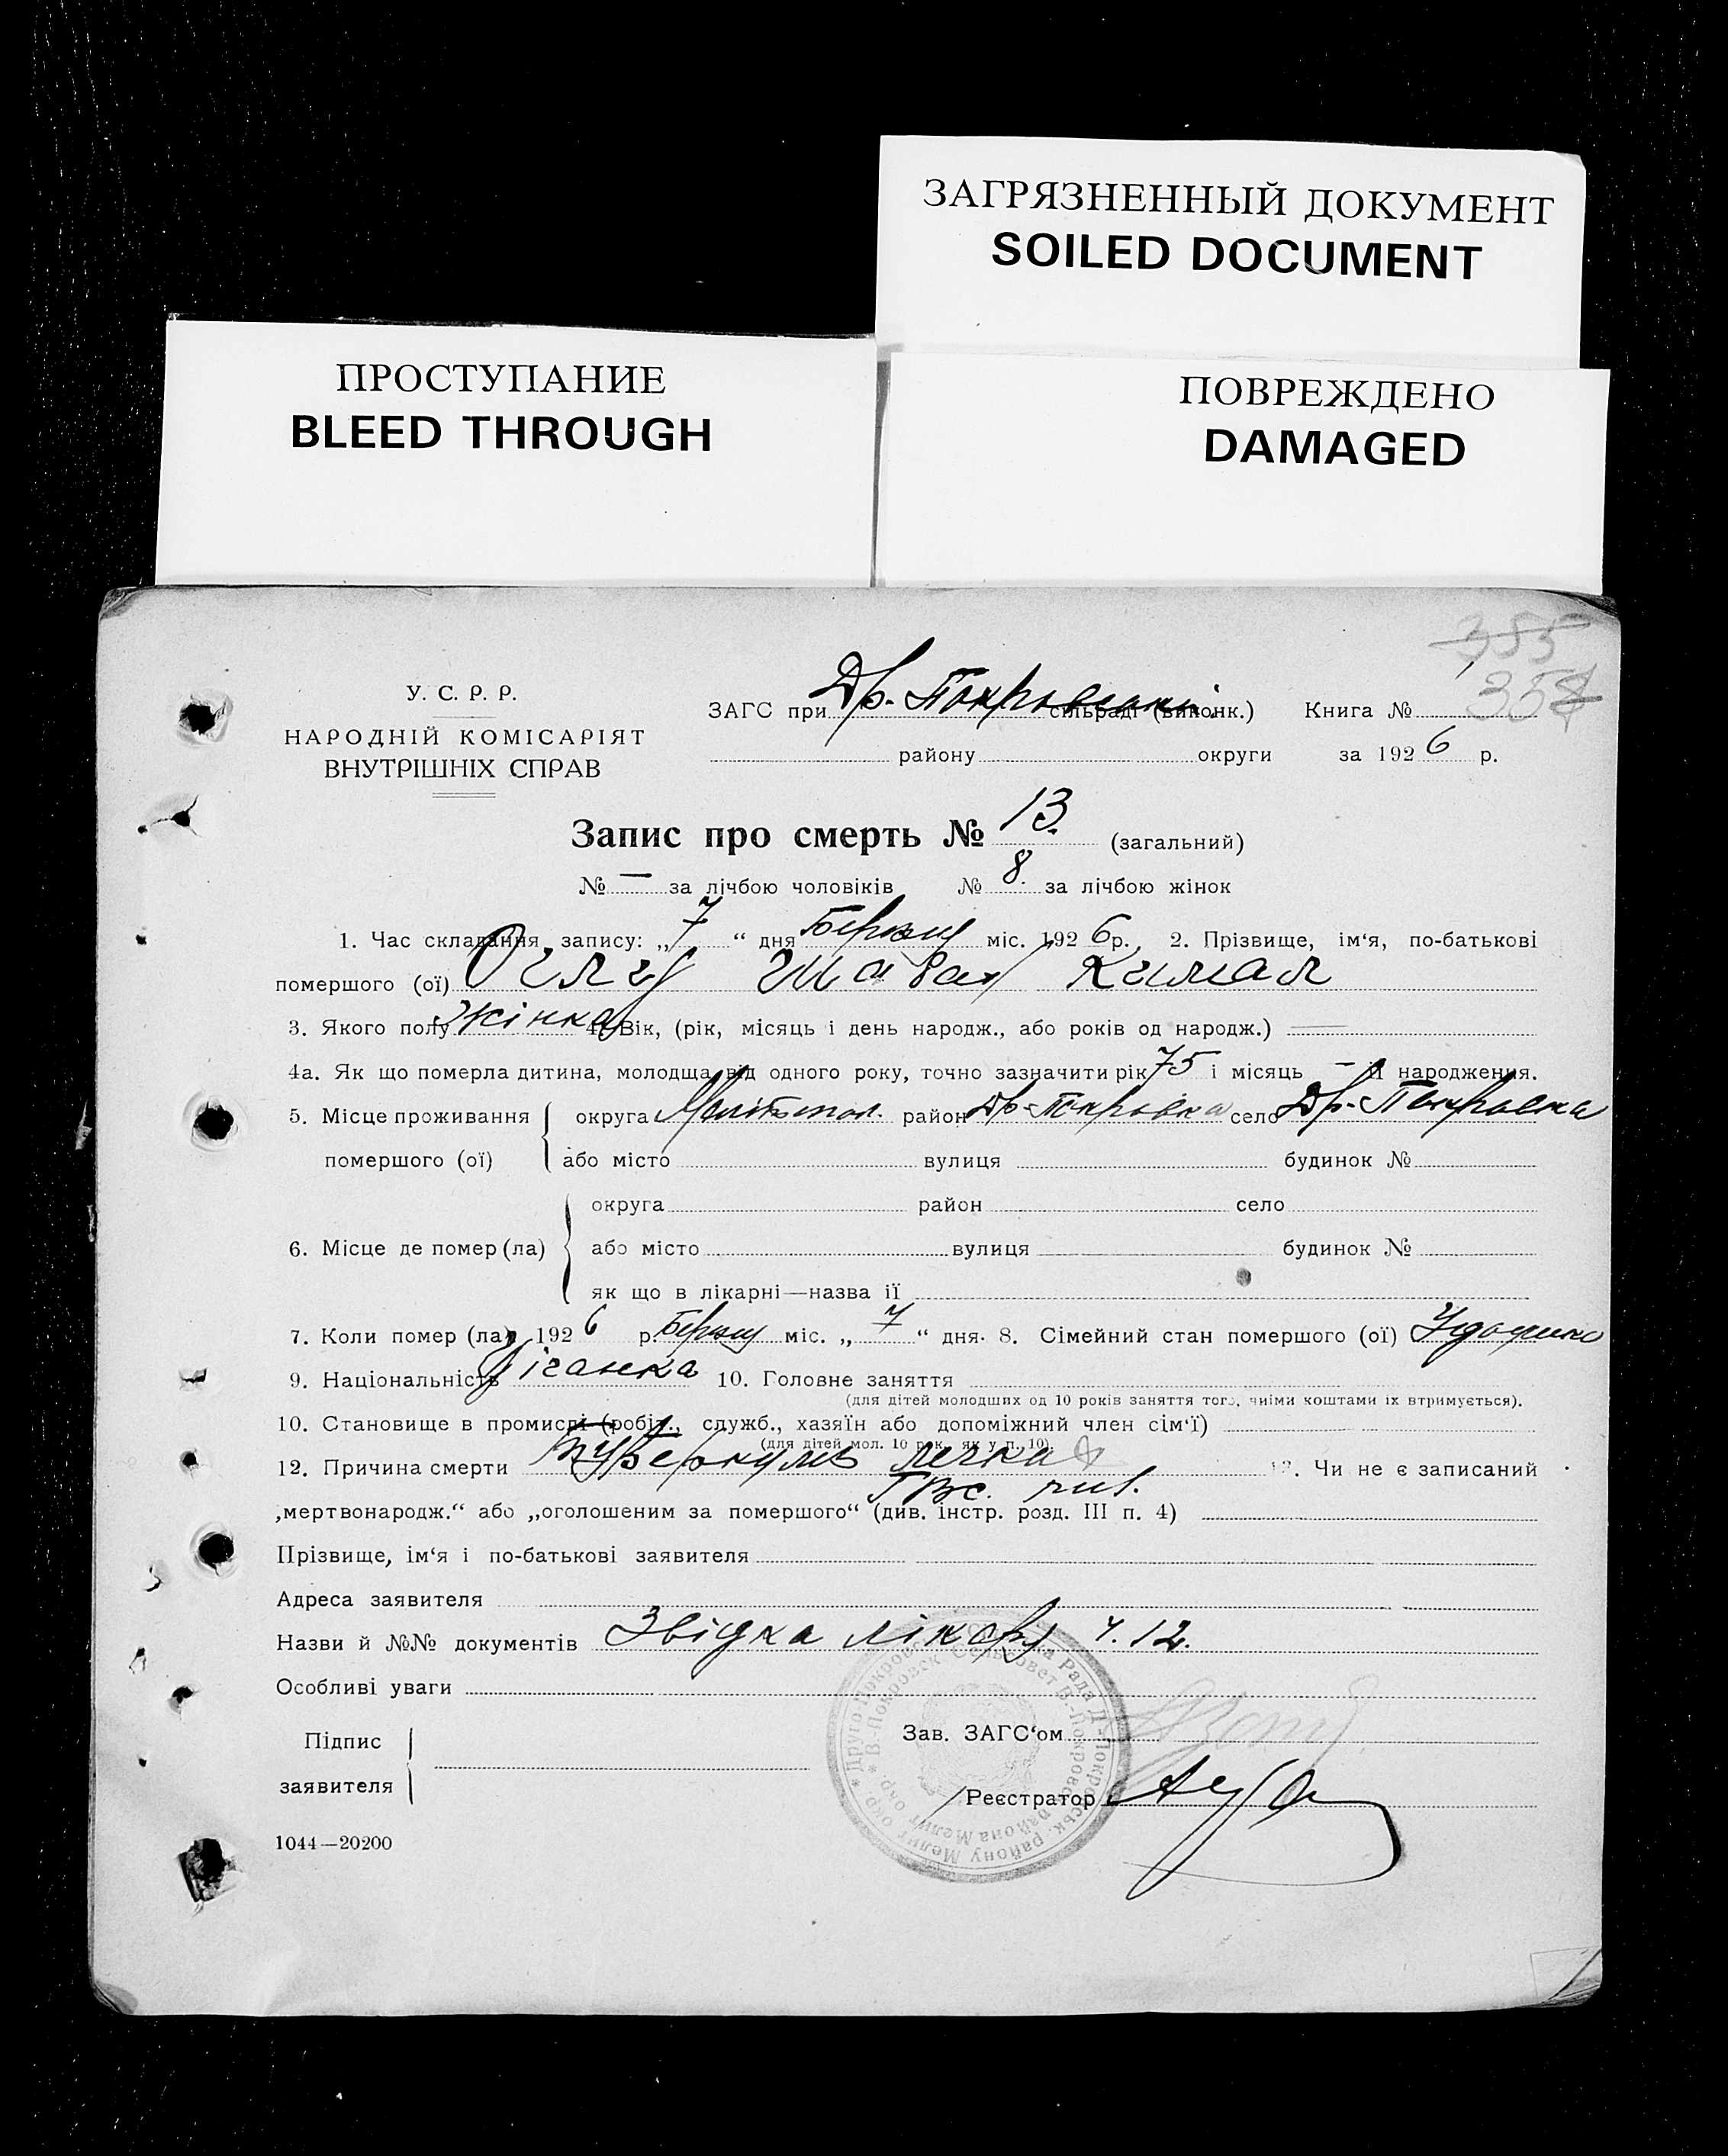 ЗАГРЯЗНЕННЫЙ ДОКУМЕНТ
SOILED DOCUMENT
ПРОСТУПАНИЕ
BLEED THROUGH
ПОВРЕЖДЕНО
DAMAGED
355
357
У. С. Р. Р.
НАРОДНІЙ КОМІСАРІЯТ
ВНУТРІШНІХ СПРАВ
ЗАГС при Др.-Покровській сільраді (виконк.) Книга №
району округи за 1926 р.
Запис про смерть № 13. (загальний)
№ — за лічбою чоловіків № 8. за лічбою жінок
1. Час складання запису: „7“ дня Березня міс. 1926 р., 2. Прізвище, ім‘я, по-батькові
помершого (ої)
3. Якого полу жінка 4. Вік, (рік, місяць і день народж., або років од народж.) —
4а. Як що померла дитина, молодща від одного року, точно зазначити рік 75 і місяць — її народження.
5. Місце проживання округа Мелітопол. район Др-Покровка село Др-Покровка
помершого (ої) або місто вулиця будинок №
округа район село
6. Місце де помер (ла) або місто вулиця будинок №
як що в лікарні—назва її
7. Коли помер (ла) 1926 р. Березня міс. „7“ дня. 8. Сімейний стан помершого (ої)
9. Національність Ціганка 10. Головне заняття
(для дітей молодших од 10 років заняття того, чиїми коштами їх втримується).
10. Становище в промислі (робіт., служб., хазяїн або допоміжний член сім‘ї)
(для дітей мол. 10 рок. як у п. 10).
12. Причина смерти Туберкульо легких 13. Чи не є записаний
ТВс. pul.
„мертвонародж.“ або „оголошеним за помершого“ (див. інстр. розд. III п. 4)
Прізвище, ім‘я і по-батькові заявителя
Адреса заявителя
Назви й №№ документів Звідка лікаря ч. 12.
Особливі уваги
Підпис
заявителя
Зав. ЗАГС‘ом
Реєстратор
1044—20200